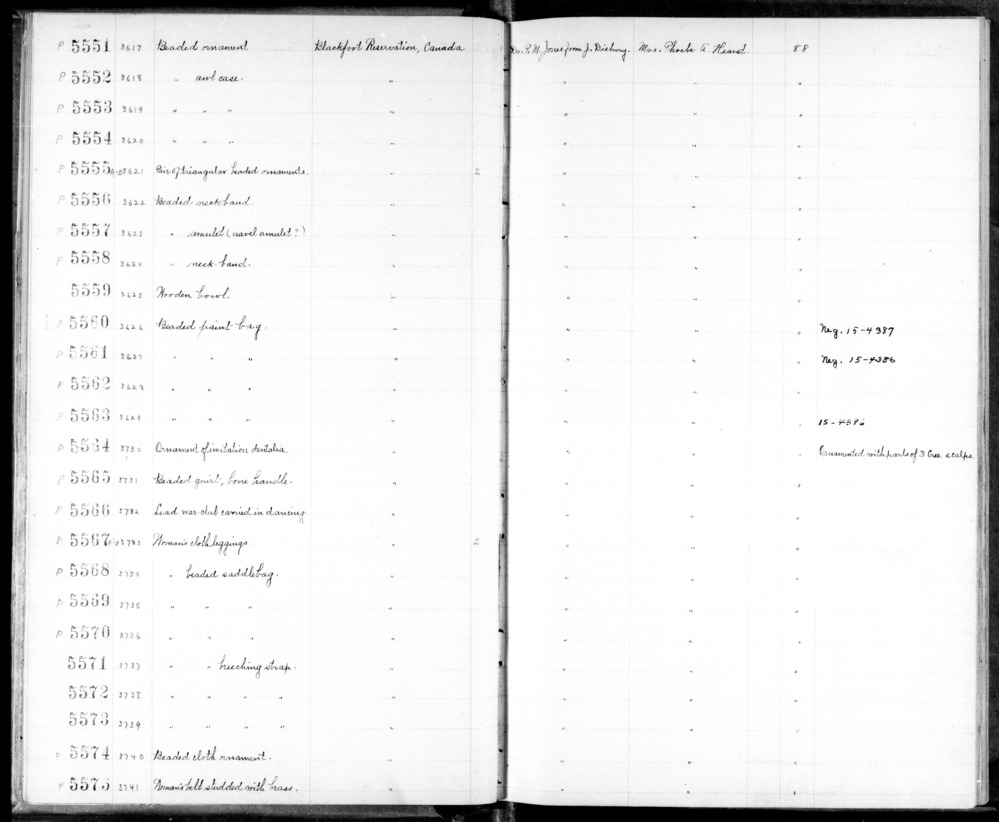 P 5551 3617 Beaded ornament Blackfoot Reservation, Canada Dr. P. M. Jones from J. Diebury. Mrs. Phoebe A. Hearst. 88
P 5552 3618 " awl case. " " " "
P 5553 3619 " " " " " " "
P 5554 3620 " " " " " " "
P 5555 A-B 3621 Pair of triangular beaded ornaments. " 2 " " "
P 5556 3622 Beaded neck band. " " " "
P 5557 3623 " amulet (navel amulet?) " " " "
P 5558 3624 " neck band. " " " "
5559 3625 Wooden bowl. " " " "
P 5560 3626 Beaded paint bag. " " " " Neg. 15-4387
P 5561 3627 " " " " " " " Neg. 15-4386
P 5562 3628 " " " " " " "
P 5563 3629 " " " " " " " 15-4396
P 5564 3730 Ornament of imitation dentalia. " " " " Ornamented with parts of 3 Cree scalps.
P 5565 3731 Beaded quirt, bone handle. " " " "
P 5566 3732 Lead war-club carried in dancing " " " "
P 5567 3733 Woman's cloth leggings. " 2 " " "
P 5568 3734 " beaded saddlebag. " " " "
P 5569 3735 " " " " " " "
P 5570 3736 " " " " " " "
5571 3737 " " breeching strap. " " " "
5572 3738 " " " " " " " "
5573 3739 " " " " " " " "
P 5574 3740 Beaded cloth ornament. " " " "
P 5575 3741 Woman's belt studded with brass. " " " "